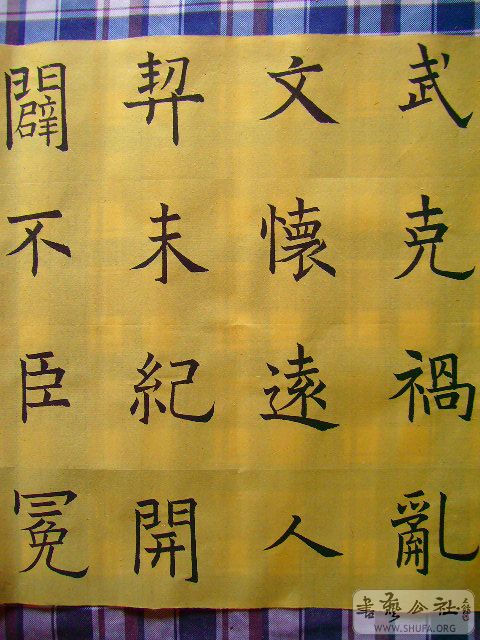 武克禍亂
文懷遠人
契未紀開
闢不臣冕
書藝公社
WWW.SHUFA.ORG